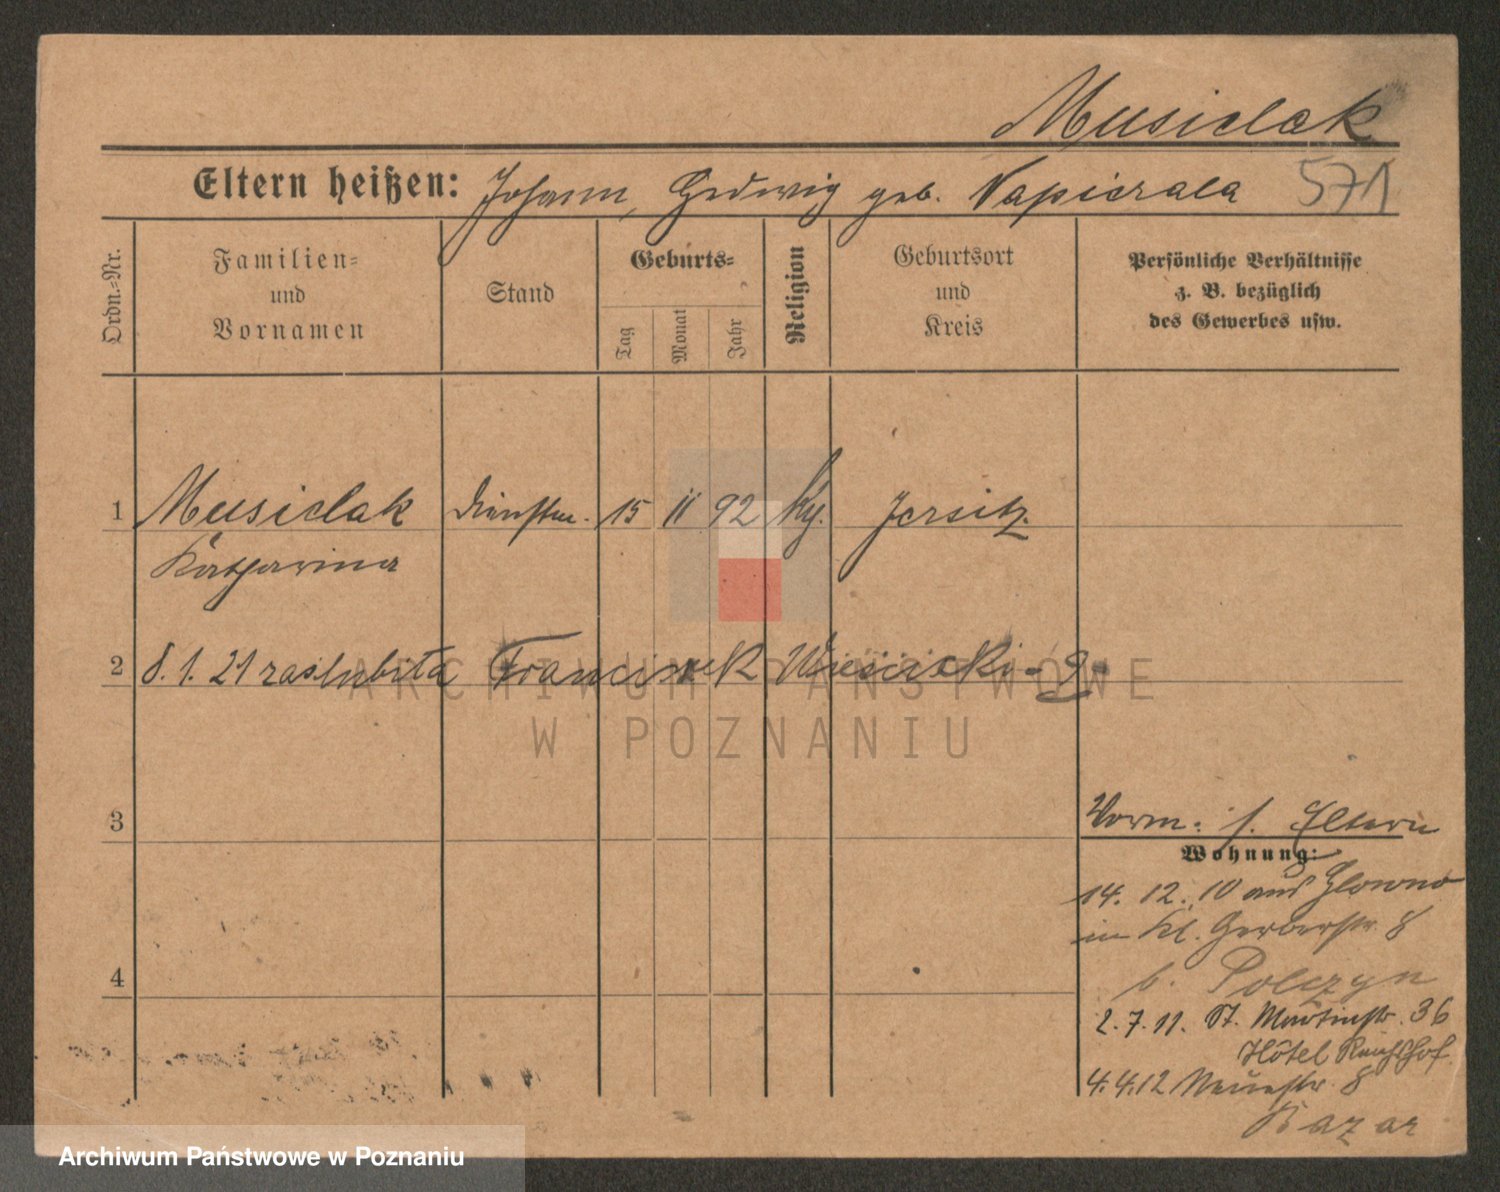 Musielak
Eltern heißen: Johann, Hedwig geb. Napierala 571
Ordn.=Nr.
Familien=
und
Vornamen
Stand
Geburts=
Tag
Monat
Jahr
Religion
Geburtsort
und
Kreis
Persönliche Verhältnisse
z. B. bezüglich
des Gewerbes usw.
1 Musielak 15 11 92 Jersitz
Katharina
2 8.1.21 zaślubiła Franciszek
3
4
Vorm: s. Eltern
Wohnung:
14. 12. 10 aus Glowno
in Kl. Gerberstr. 8
b. Polczyn
2. 7. 11. St. Martinstr. 36
Hôtel
4. 4. 12 Neuestr. 8
Bazar
ARCHIWUM PAŃSTWOWE
W POZNANIU
Archiwum Państwowe w Poznaniu